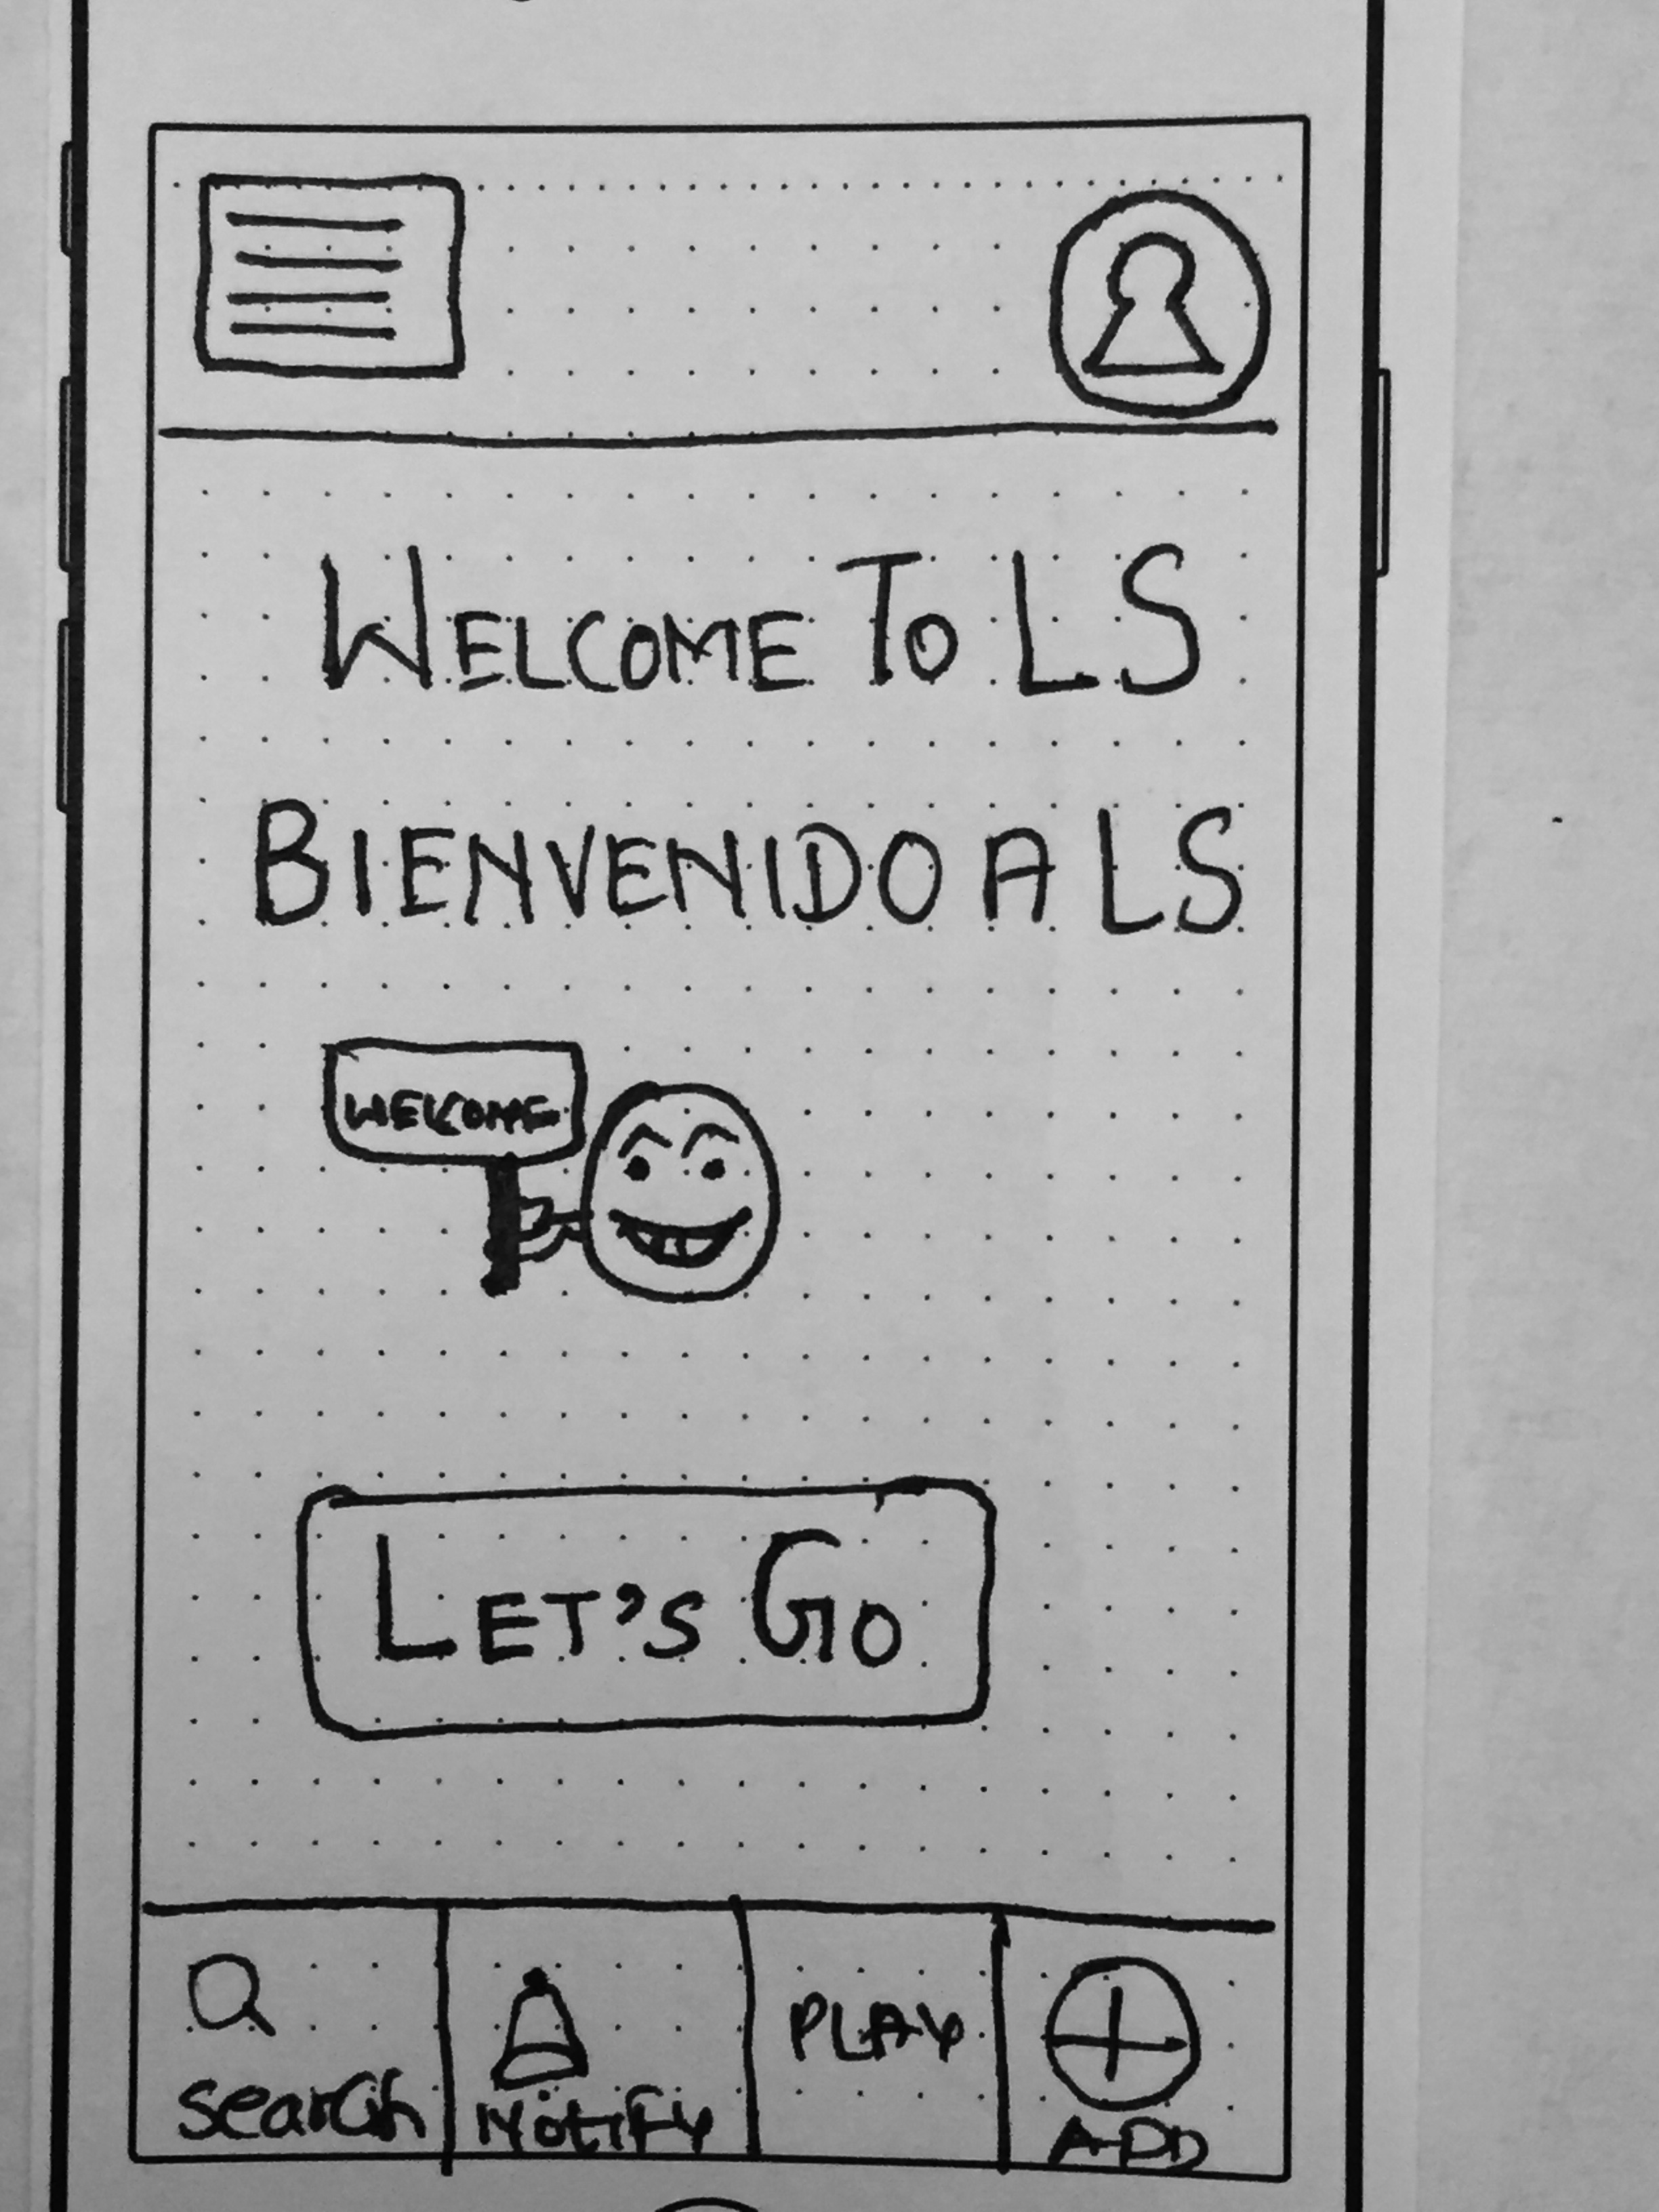 WELCOME TO LS
BIENVENIDO A LS
WELCOME
LET'S GO
search
NOTIFY
PLAY
ADD